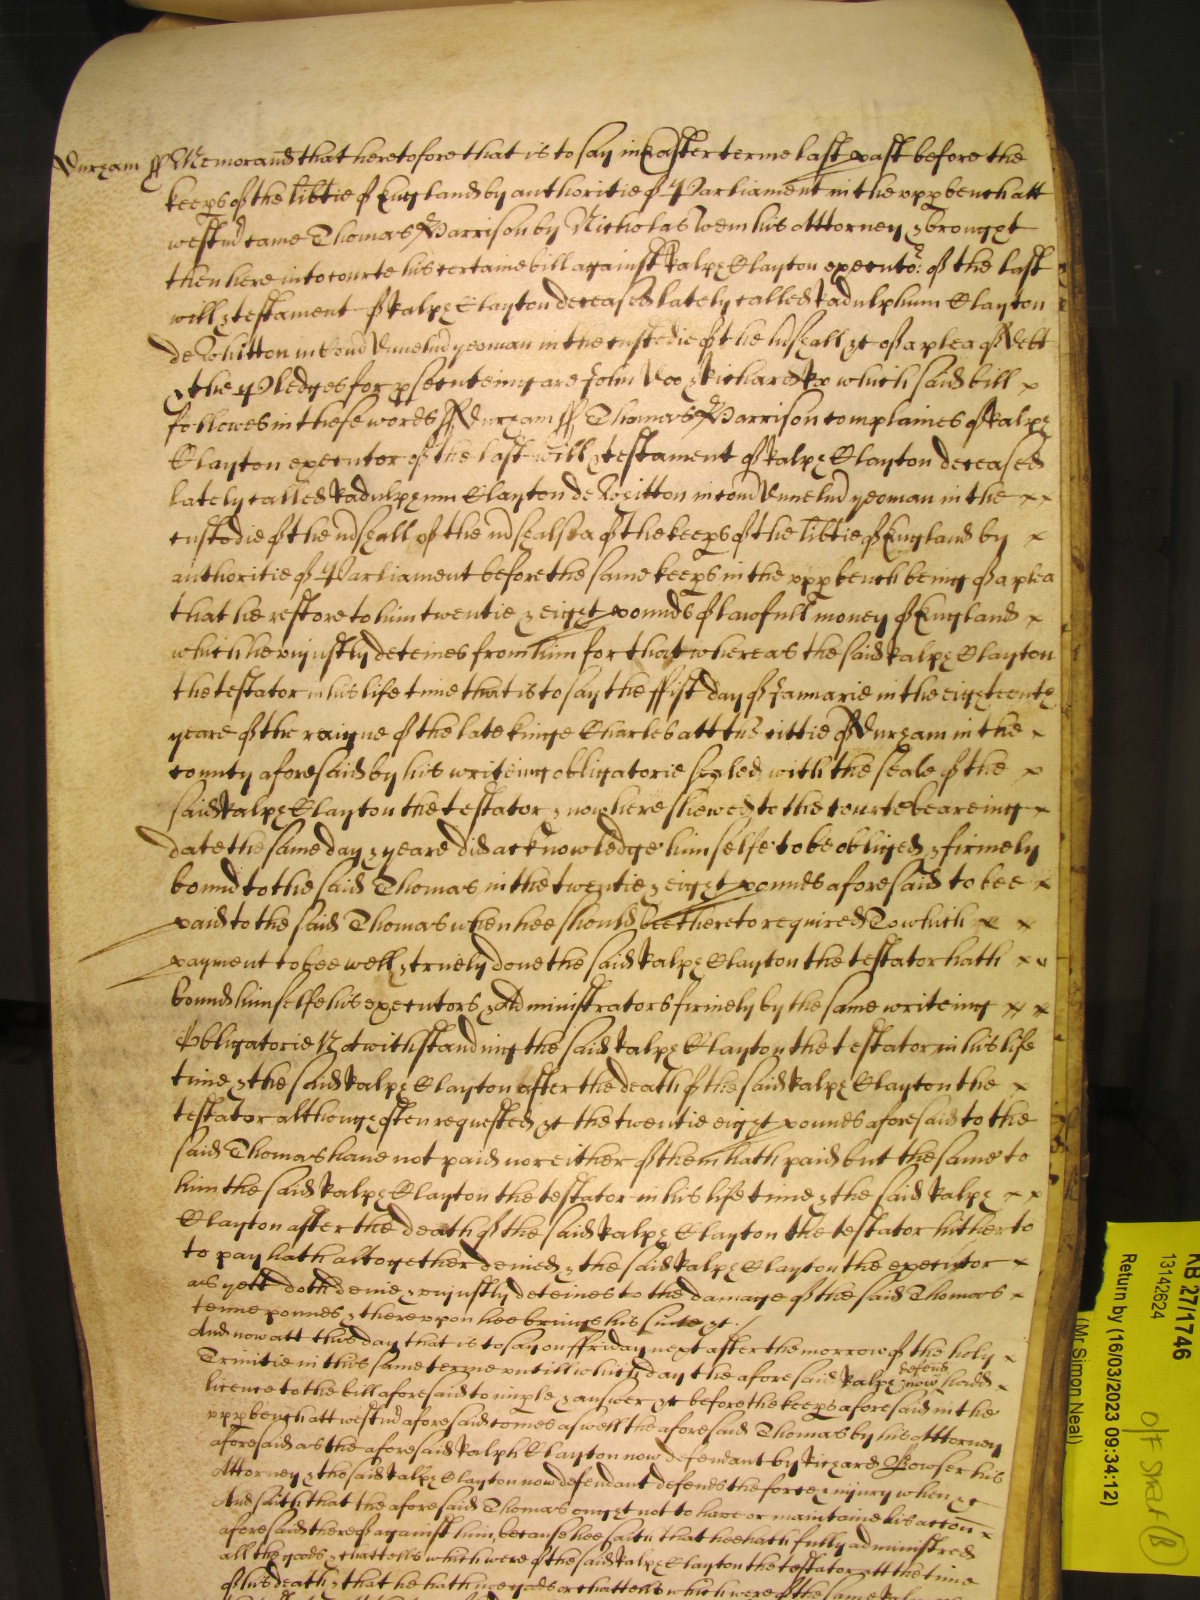 Durham ss Memorand that heretofore that is to say in Easter terme last past before the
keeps of the libtie of England by authoritie of Parliament in the vpp bench att
westmr came Thomas Harrison by Nicholas his Attorney & brought
then here into courte his certaine bill against Ralph Clayton executor of the last
will & testament of Ralph Clayton deceased lately called Radulphum Clayton
de Whitton in Com Dunelm yeoman in the custodie of the mshall &c of a plea of Debt
& the Pledges for psecuteing are John Doo & Richard Roo which said bill
followes in these words ss Durham ss Thomas Harrison complaines of Ralph
Clayton executor of the last will & testament of Ralph Clayton deceased
lately called Radulphum Clayton de Whitton in com Dunelm yeoman in the
custodie of the mshall of the mshalsea of the keeps of the libtie of England by
authoritie of Parliament before the same keeps in the vpp bench being of a plea
that he restore to him twentie & eight pounds of lawfull money of England
which he vniustly deteines from him for that whereas the said Ralph Clayton
the testator in his life time that is to say the ffist day of Januarie in the eighteenth
yeare of the raigne of the late kinge Charles att the cittie of Durham in the
county aforesaid by his writeing obligatorie sealed with the seale of the
said Ralph Clayton the testator & now here shewed to the courte beareing
date the same day & yeare did acknowledge himselfe to be obliged & firmely
bound to the said Thomas in the twentie & eight pounds aforesaid to bee
paid to the said Thomas when hee should bee thereto required To which
payment to bee well & truely done the said Ralph Clayton the testator hath
bound himselfe his executors & Administrators firmely by the same writeing
Obligatorie Notwithstanding the said Ralph Clayton the testator in his life
time & the said Ralph Clayton after the death of the said Ralph Clayton the
testator although often requested &c the twentie eight pounds aforesaid to the
said Thomas haue not paid nor either of them hath paid but the same to
him the said Ralph Clayton the testator in his life time & the said Ralph
Clayton after the death of the said Ralph Clayton the testator hitherto
to pay hath altogether denied & the said Ralph Clayton the executor
as yett doth denie & vniustly deteines to the damage of the said Thomas
tenne pounds & therevpon hee brings his suite &c
And now att this day that is to say on ffriday next after the morrow of the holy
Trinitie in this same terme vntill which day the aforesaid Ralph defend now hadd
licence to the bill aforesaid to imple & answer &c before the keeps aforesaid in the
vpp bench att westmr aforesaid comes aswell the aforesaid Thomas by his Attorney
aforesaid as the aforesaid Ralph Clayton now defendant by Richard Bowser his
Attorney & the said Ralph Clayton now defendant defends the force & iniury when &c
And saith that the aforesaid Thomas ought not to haue or maintaine his accon
aforesaid thereof against him because hee saith that hee hath fully administred
all the goods & chattells which were of the said Ralph Clayton the testator att the time
of his death & that he hath noe goods or chattells which were of the same Ralph
KB 27/1746
13142624
Return by (16/03/2023 09:34:12)
(Mr Simon Neal)
O/F Straf
B